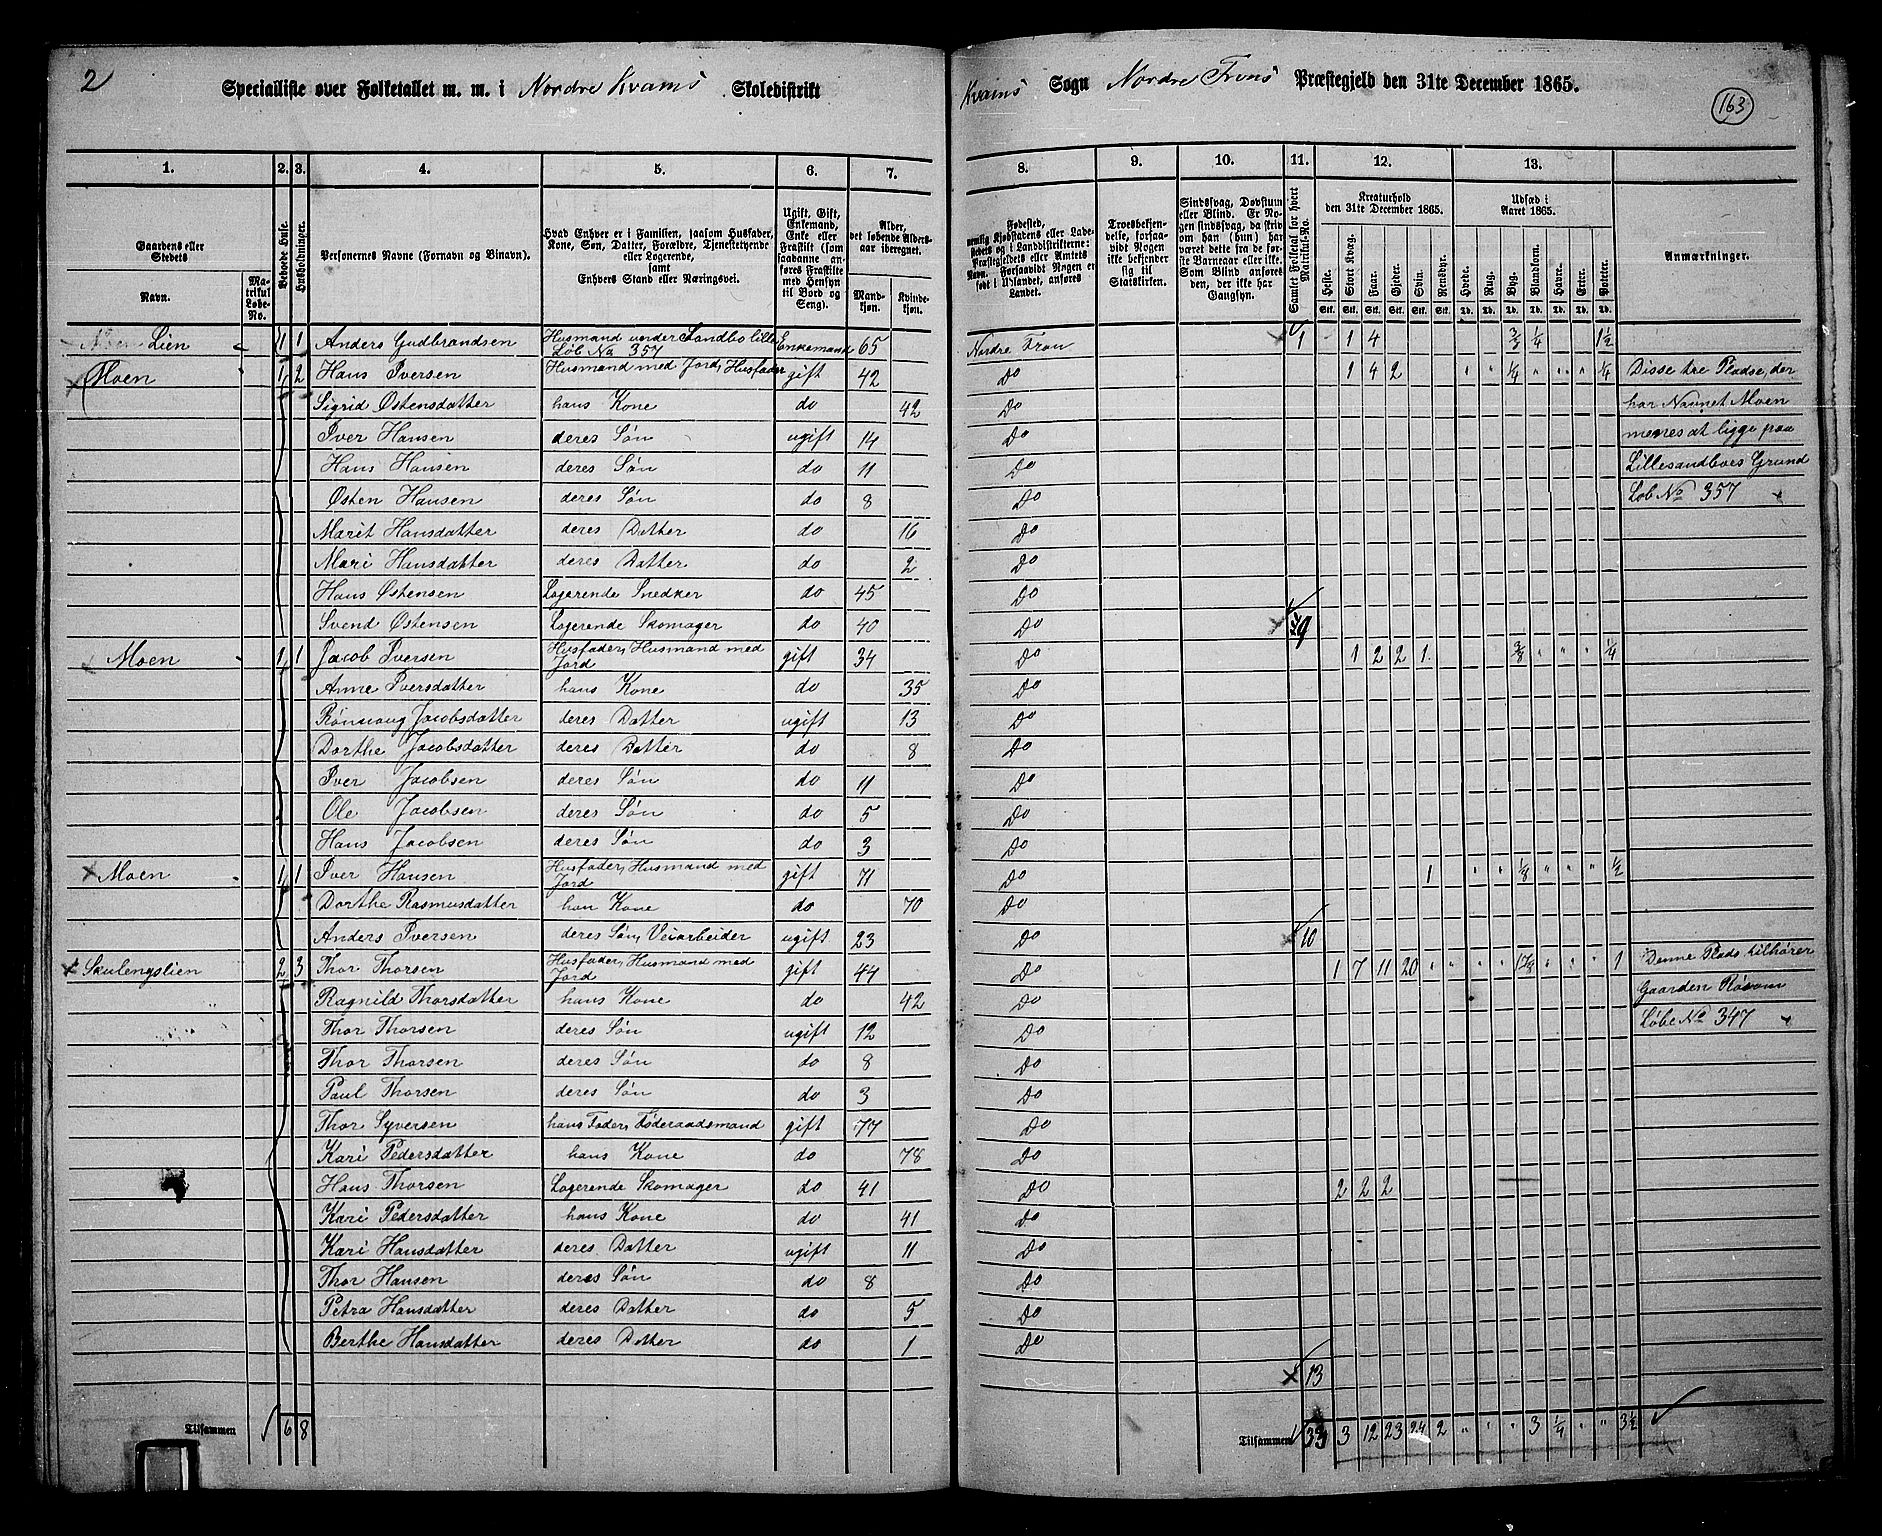 2 Specialliste over Folketallet m. m. i Nordre Kvams Skoledistrikt Kvams Sogn Nordre Frons Præstegjeld den 31te December 1865.
163
1. 2. 3. 4. 5. 6. 7. 8. 9. 10. 11. 12. 13.
Gaardens eller Stedets
Navn. Matrikul Løbe-No.
Beboede Huse.
Husholdninger.
Personernes Navne (Fornavn og Binavn).
Hvad Enhver er i Familien, saasom Husfader, Kone, Søn, Datter, Forældre, Tjenestetyende eller Logerende, samt Enhvers Stand eller Næringsvei.
Ugift, Gift, Enkemand, Enke eller Fraskilt (som saadanne anføres Fraskilte med Hensyn til Bord og Seng).
Alder, det løbende Aldersaar iberegnet.
Mandkjøn. Kvindekjøn.
Fødested, nemlig Kjøbstadens eller Ladestedets og i Landdistrikterne: Præstegjeldets eller Amtets Navn. Forsaavidt Nogen er født i Udlandet, anføres Landet.
Troesbekjendelse, forsaavidt Nogen ikke bekjender sig til Statskirken.
Sindssvag, Døvstum eller Blind. Er Nogen sindssvag, da skrives om han (hun) har været dette fra de første Barneaar eller ikke. Som Blind anføres den, der ikke har Gangsyn.
Samlet Folketal for hvert Matrikul-No.
Kreaturhold den 31te December 1865.
Heste. Stort Kvæg. Faar. Gjeder. Svin. Rensdyr.
Udsæd i Aaret 1865.
Hvede. Rug. Byg. Blandkorn. Havre. Erter. Poteter.
Anmærkninger.
Lien 1 1 Anders Gudbrandsen Husmand under Sandbo lille Løb No 357 Enkemand 65 Nordre Fron 1 1 4 1/4 1 1/2
Moen 1 2 Hans Iversen Husmand med Jord, Husfader gift 42 Do 1 4 2 " " 1/4 " " " 1/4 Disse tre Pladse, der
Sigrid Østensdatter hans Kone do 42 Do har Navnet Moen
Iver Hansen deres Søn ugift 14 Do menes at ligge paa
Hans Hansen deres Søn do 11 Do Lillesandboes Grund
Østen Hansen deres Søn do 8 Do Løb No 357
Marit Hansdatter deres Datter do 16 Do
Mari Hansdatter deres Datter do 2 Do
Hans Østensen Logerende Snedker do 45 Do
Svend Østensen Logerende Skomager do 40 Do 9
Moen 1 1 Jacob Iversen Husfader, Husmand med Jord gift 34 Do 1 2 2 1 3/8 " " " 1/4
Anne Iversdatter hans Kone do 35 Do
Rønnaug Jacobsdatter deres Datter ugift 13 Do
Dorthe Jacobsdatter deres Datter do 8 Do
Iver Jacobsen deres Søn do 11 Do
Ole Jacobsen deres Søn do 5 Do
Hans Jacobsen deres Søn do 3 Do
Moen 1 1 Iver Hansen Husfader, Husmand med Jord gift 71 Do 1 " " 1/8 " " " 1/2
Dorthe Rasmusdatter han Kone do 70 Do
Anders Iversen deres Søn, Veiarbeider ugift 23 Do 10
Skulengslien 2 3 Thor Thorsen Husfader, Husmand med Jord gift 44 Do 1 7 11 20 " " " " " " " 1 Denne Plads tilhører
Ragnild Thorsdatter hans Kone do 42 Do Gaarden Røssum
Thor Thorsen deres Søn ugift 12 Do Løbe No 347
Thor Thorsen deres Søn do 8 Do
Paul Thorsen deres Søn do 3 Do
Thor Syversen hans Fader, Føderaadsmand gift 77 Do
Kari Pedersdatter hans Kone do 78 Do
Hans Thorsen Logerende Skomager do 41 Do 2 2 2
Kari Pedersdatter hans Kone do 41 Do
Kari Hansdatter deres Datter ugift 11 Do
Thor Hansen deres Søn do 8 Do
Petra Hansdatter deres Datter do 5 Do
Berthe Hansdatter deres Datter do 1 Do
13
Tilsammen 6 8 Tilsammen 33 3 12 23 24 2 " " " 3 1/4 " " 3 1/2